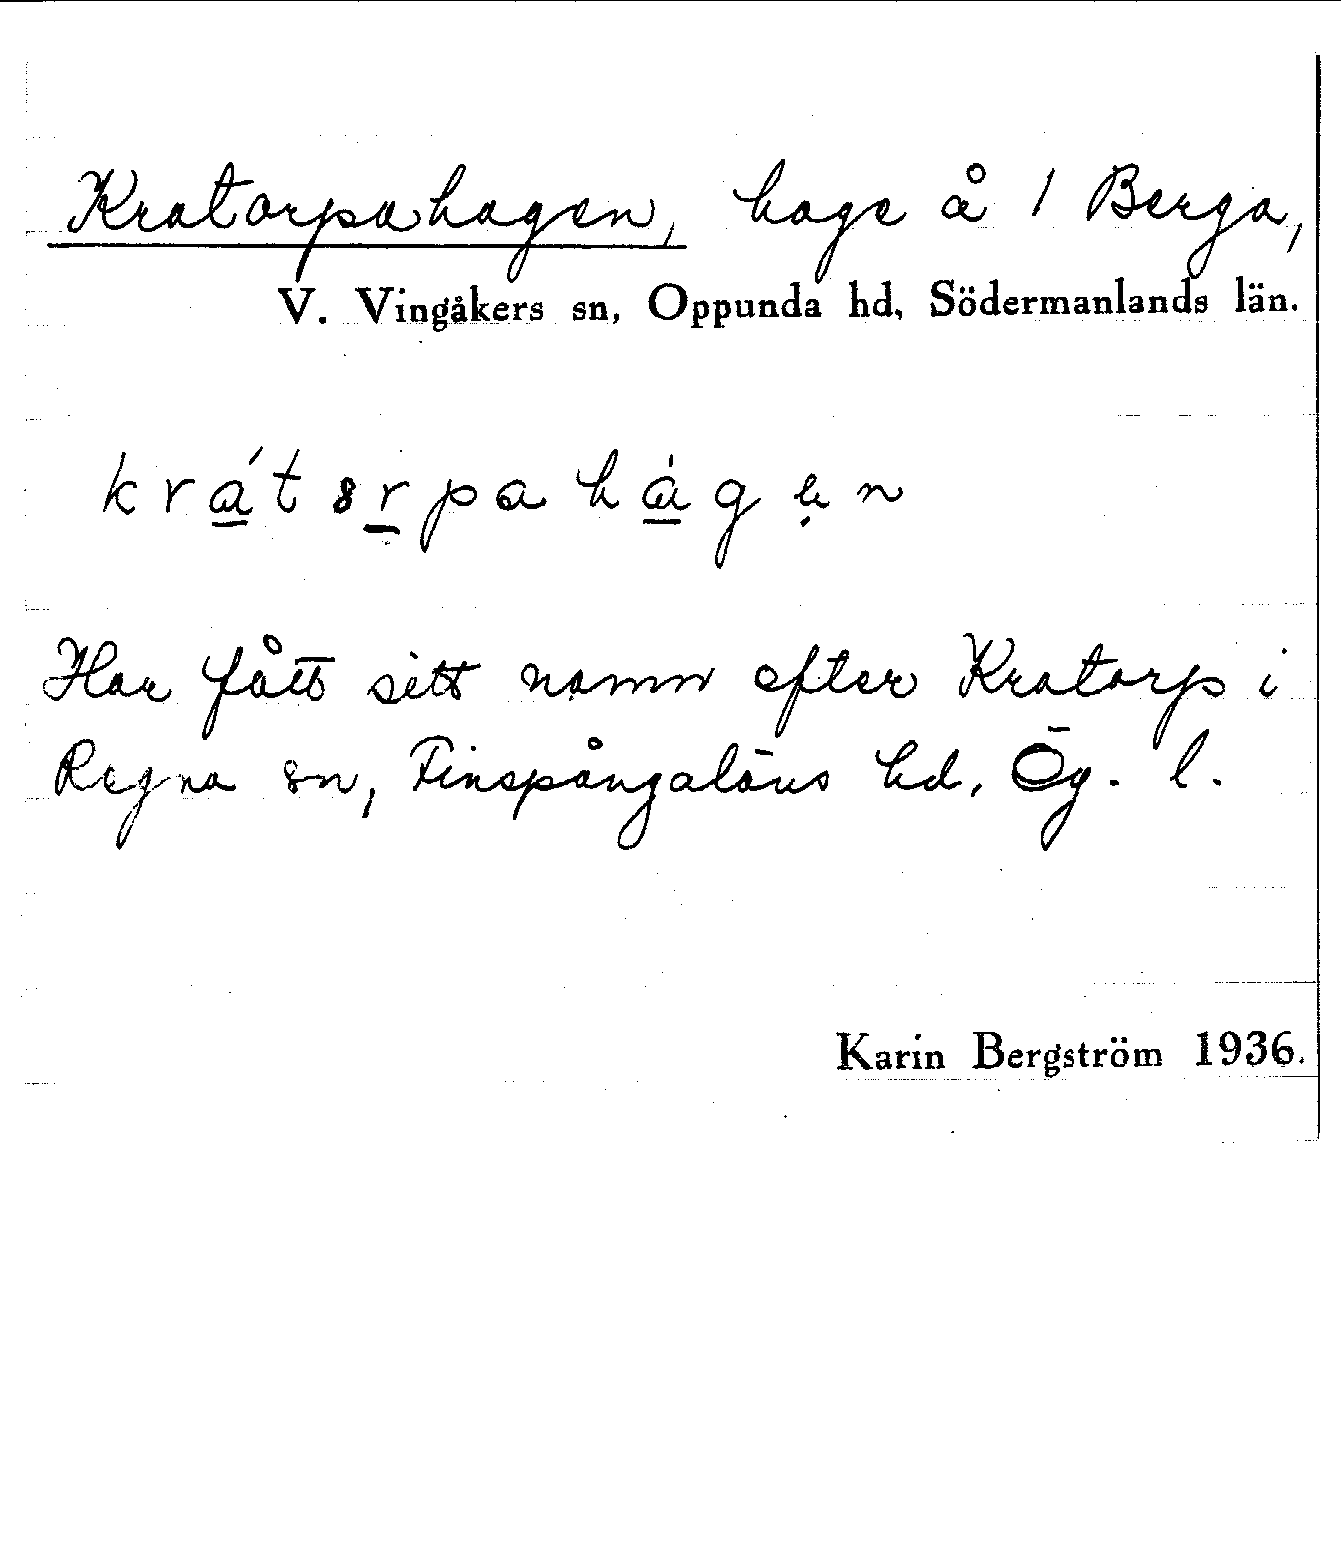 Kratorpahagen, hage å 1 Berga,
V. Vingåkers sn, Oppunda hd, Södermanlands län.
kra̲´t8r̲paha̲̍gẹn
Har fått sitt namn efter Kratorp i
Regna sn, Finspångaläns hd, Ög. l.
Karin Bergström 1936.